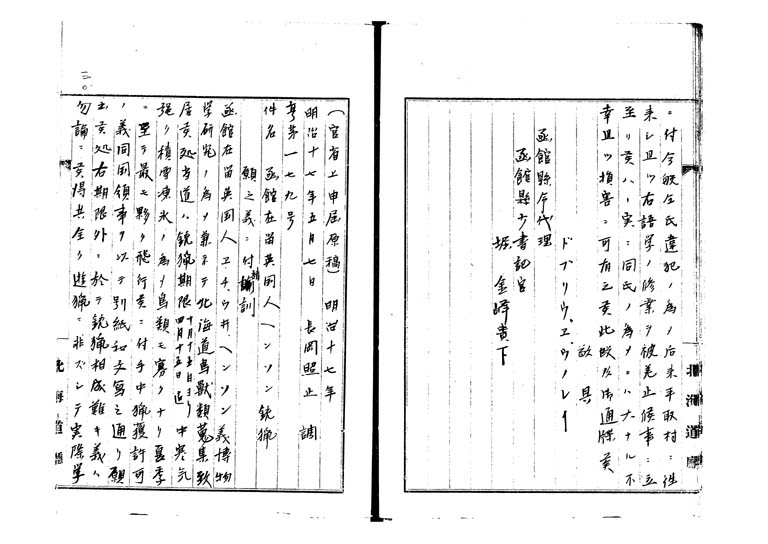 ニ付今般仝氏違犯ノ為メ后来平取村ニ住
来シ且ツ右語学ノ修業ヲ被差止候事ニ立
至リ候ハヽ実ニ同氏ノ為メニハ大ナル不
幸且ツ損害ニ可有之候此段及御通牒候
敬具
ドブリウ、エ、ウーレー
函館縣令代理
函館縣少書記官
堀金峰貴下
北海道庁
(官省上申届原稿)明治十七年
明治十七年五月七日 長岡照止 調
専第一七九号
件名 函館在留英国人ヘンソン銃猟
願之義ニ付 訓
函館在留英国人エチ、ウ井ヘンソン義博物
学研究ノ為メ兼テ北海道鳥獣類蒐集致
居候処当道ハ銃猟期限十月十五日ヨリ四月十五日迄中寒気
強ク積雪凍氷ノ為メ鳥類モ寡クナリ夏季
ニ至テ最モ夥ク飛行候ニ付手中猟獲許可
ノ義同国領事ヲ以テ別紙和文写之通リ願
出候処右期限外ニ於テ銃猟相成難キ義ハ
勿論ニ候得共全ク遊猟ニ非ズシテ実際学
三〇